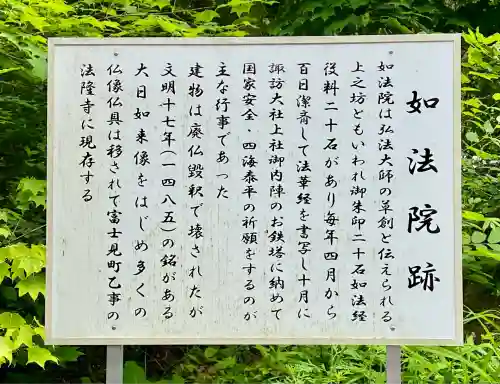 如法院跡
如法院は弘法大師の草創と伝えられる。
上之坊ともいわれ御朱印二十石如法経
役料二十石があり毎年四月から
百日潔斎して法華経を書写し十月に
諏訪大社上社御内陣のお鉄塔に納めて
国家安全・四海泰平の祈願をするのが
主な行事であった
建物は廃仏毀釈で壊されたが
文明十七年(一四八五)の銘がある
大日如来像をはじめ多くの
仏像仏具は移されて富士見町乙事の
法隆寺に現存する